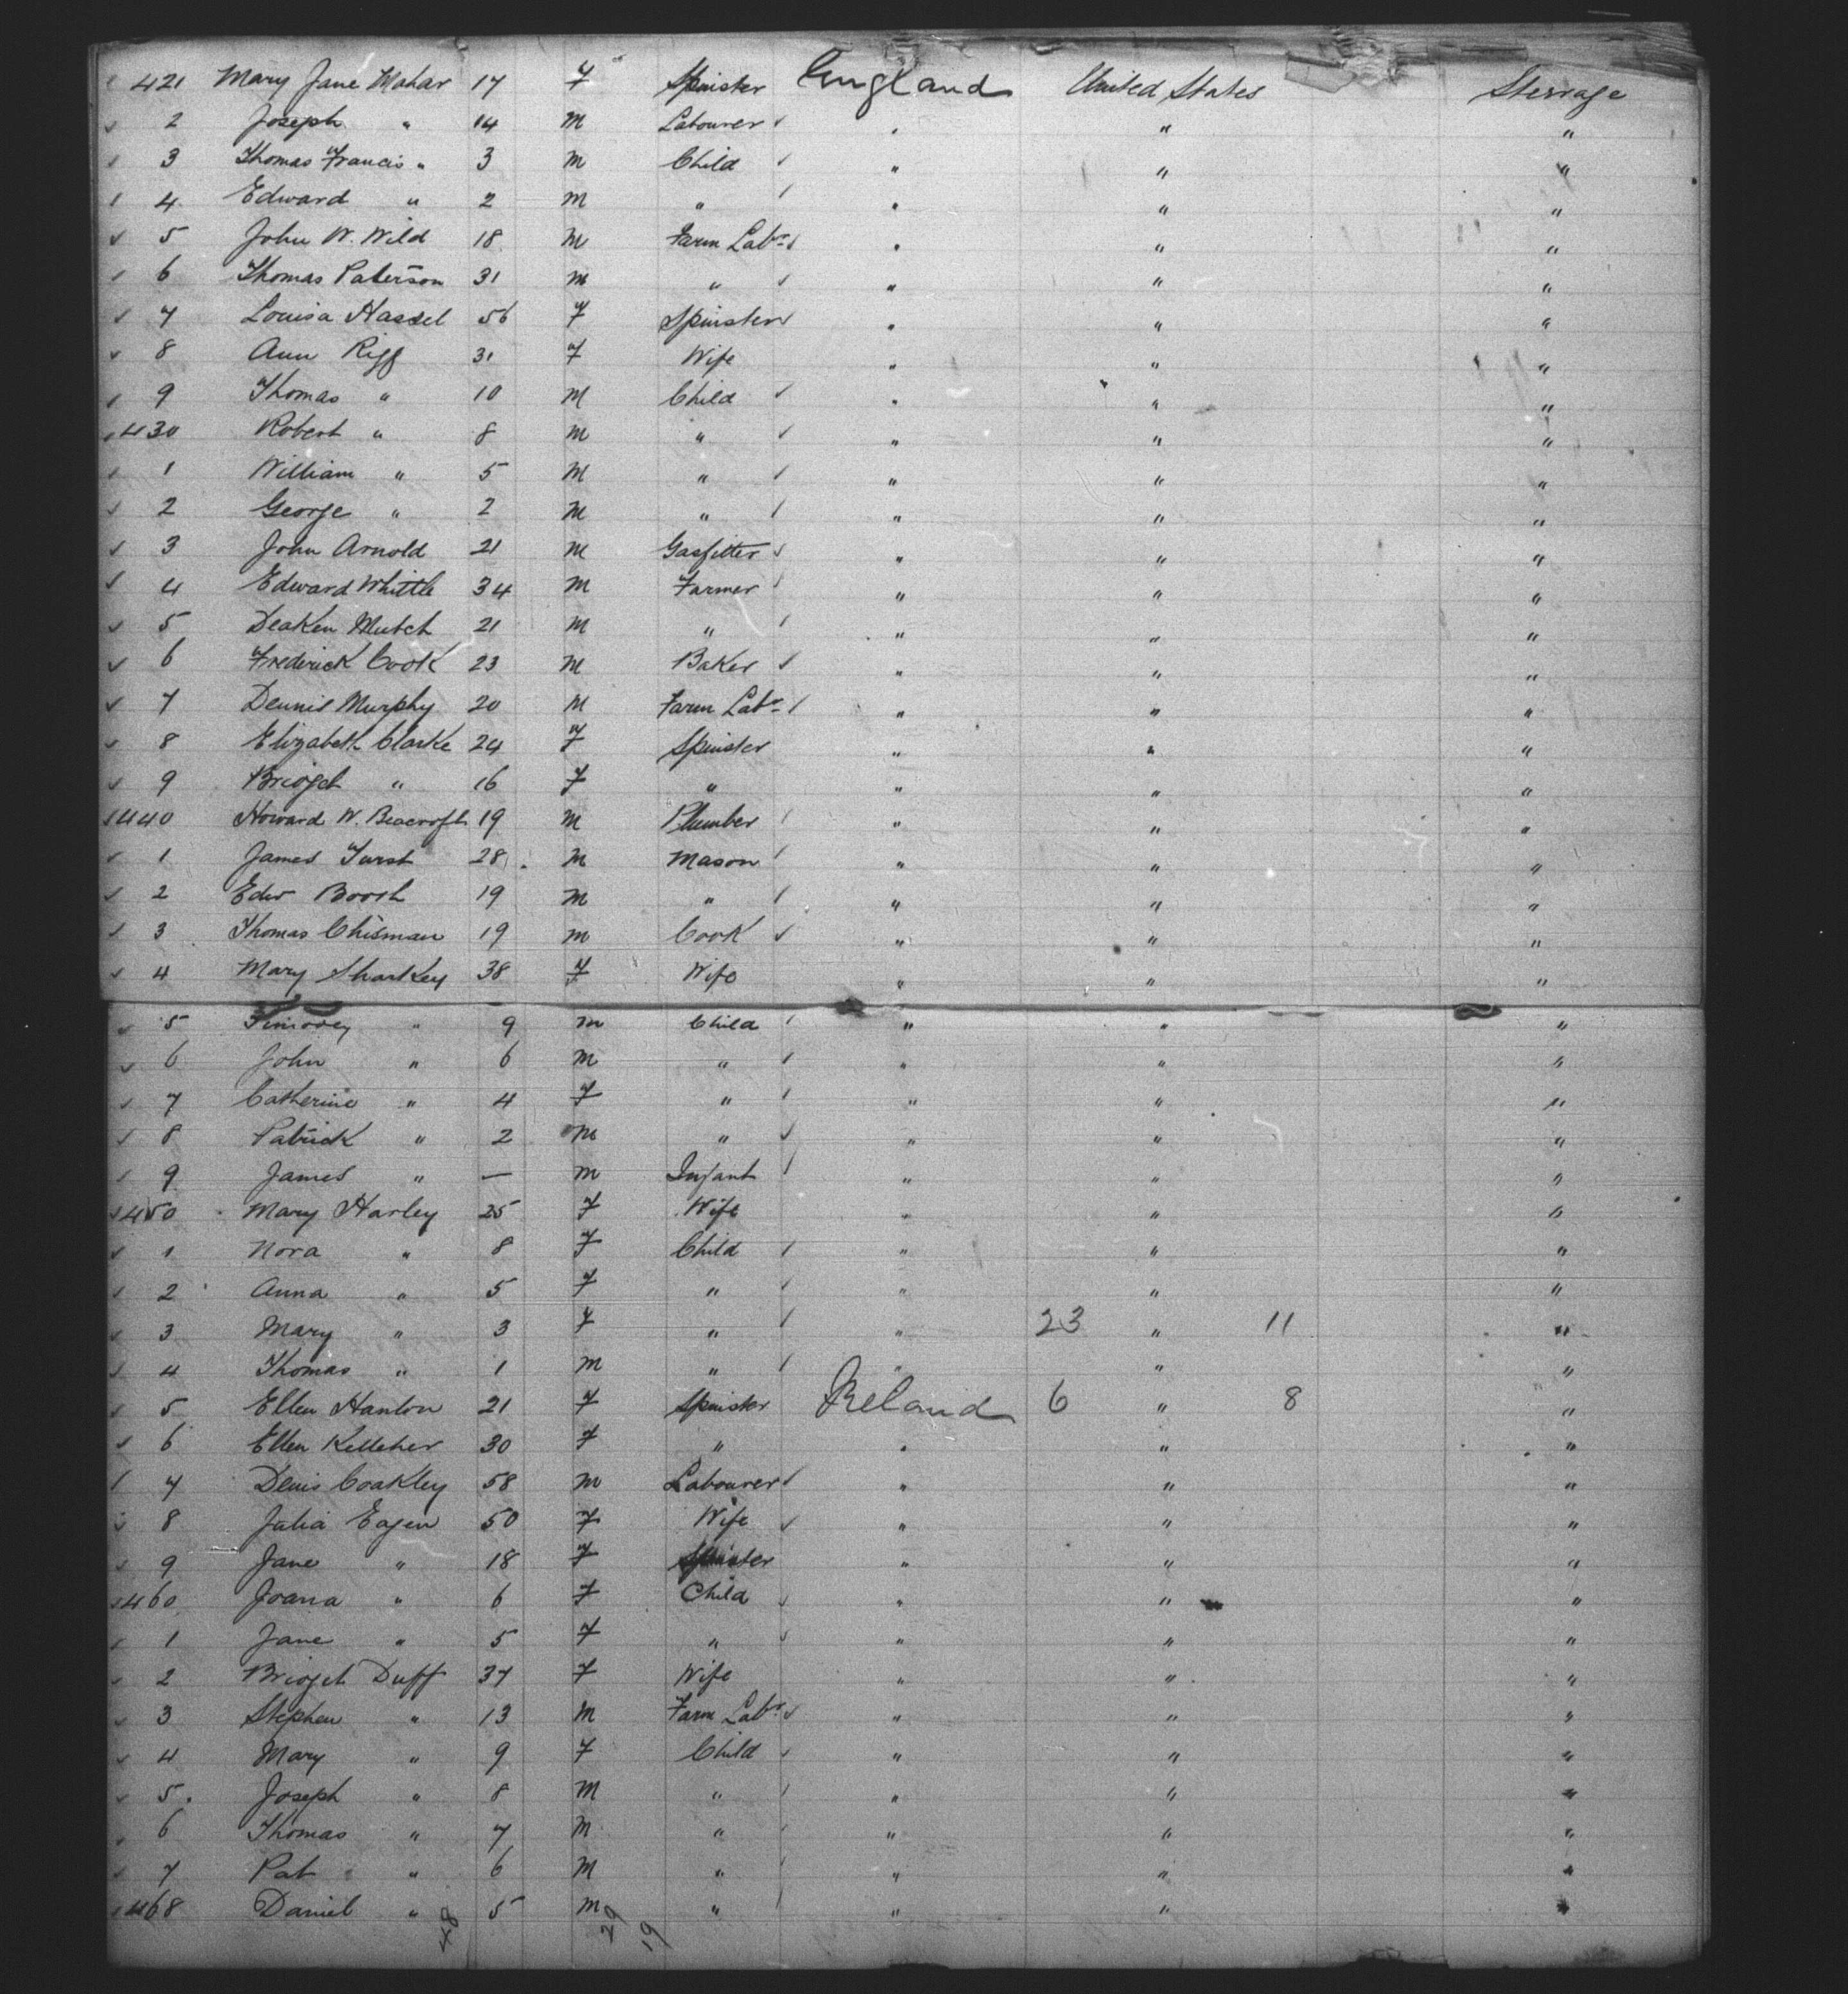 421 Mary Jane Mahar 17 F Spinster England United States Sterrage
2 Joseph " 14 M Labourer " " "
3 Thomas Francis " 3 M Child " " "
4 Edward " 2 M " " " "
5 John W. Wild 18 M Farm Labr " " "
6 Thomas Paterson 31 M " " " "
7 Louisa Hassel 56 F Spinster " " "
8 Ann Rigg 31 F Wife " " "
9 Thomas " 10 M Child " " "
430 Robert " 8 M " " " "
1 William " 5 M " " " "
2 George " 2 M " " " "
3 John Arnold 21 M Gasfitter " " "
4 Edward Whittle 34 M Farmer " " "
5 Deaken Mutch 21 M " " " "
6 Frederick Cook 23 M Baker " " "
7 Dennis Murphy 20 M Farm Labr " " "
8 Elizabeth Clarke 24 F Spinster " " "
9 Bridget " 16 F " " " "
440 Howard W. Beacroft 19 M Plumber " " "
1 James 28 M Mason " " "
2 Edw Booth 19 M " " " "
3 Thomas Chisman 19 M Cook " " "
4 Mary Sharkey 38 F Wife " " "
5 " 9 M Child " " "
6 John " 6 M " " " "
7 Catherine " 4 F " " " "
8 Patrick " 2 M " " " "
9 James " — M Infant " " "
450 Mary Harley 25 F Wife " " "
1 Nora " 8 F Child " " "
2 Anna " 5 F " " " "
3 Mary " 3 F " " 23 " 11 "
4 Thomas " 1 M " " " "
5 Ellen Hanlon 21 F Spinster Ireland 6 " 8 "
6 Ellen Kelleher 30 F " " " "
7 Denis Coakley 58 M Labourer " " "
8 Julia Eagen 50 F Wife " " "
9 Jane " 18 F Spinster " " "
460 Joana " 6 F Child " " "
1 Jane " 5 F " " " "
2 Bridget Duff 37 F Wife " " "
3 Stephen " 13 M Farm Labr " " "
4 Mary " 9 F Child " " "
5 Joseph " 8 M " " " "
6 Thomas " 7 M " " " "
7 Pat " 6 M " " " "
468 Daniel " 5 M " " " "
48 29 19